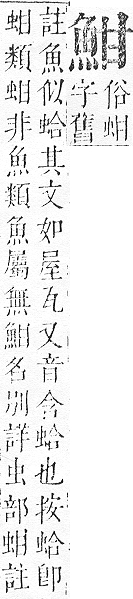 魽
俗蚶
字舊
註魚似蛤其文如屋瓦又音含蛤也按蛤卽
蚶類蚶非魚類魚屬無魽名別詳虫部蚶註